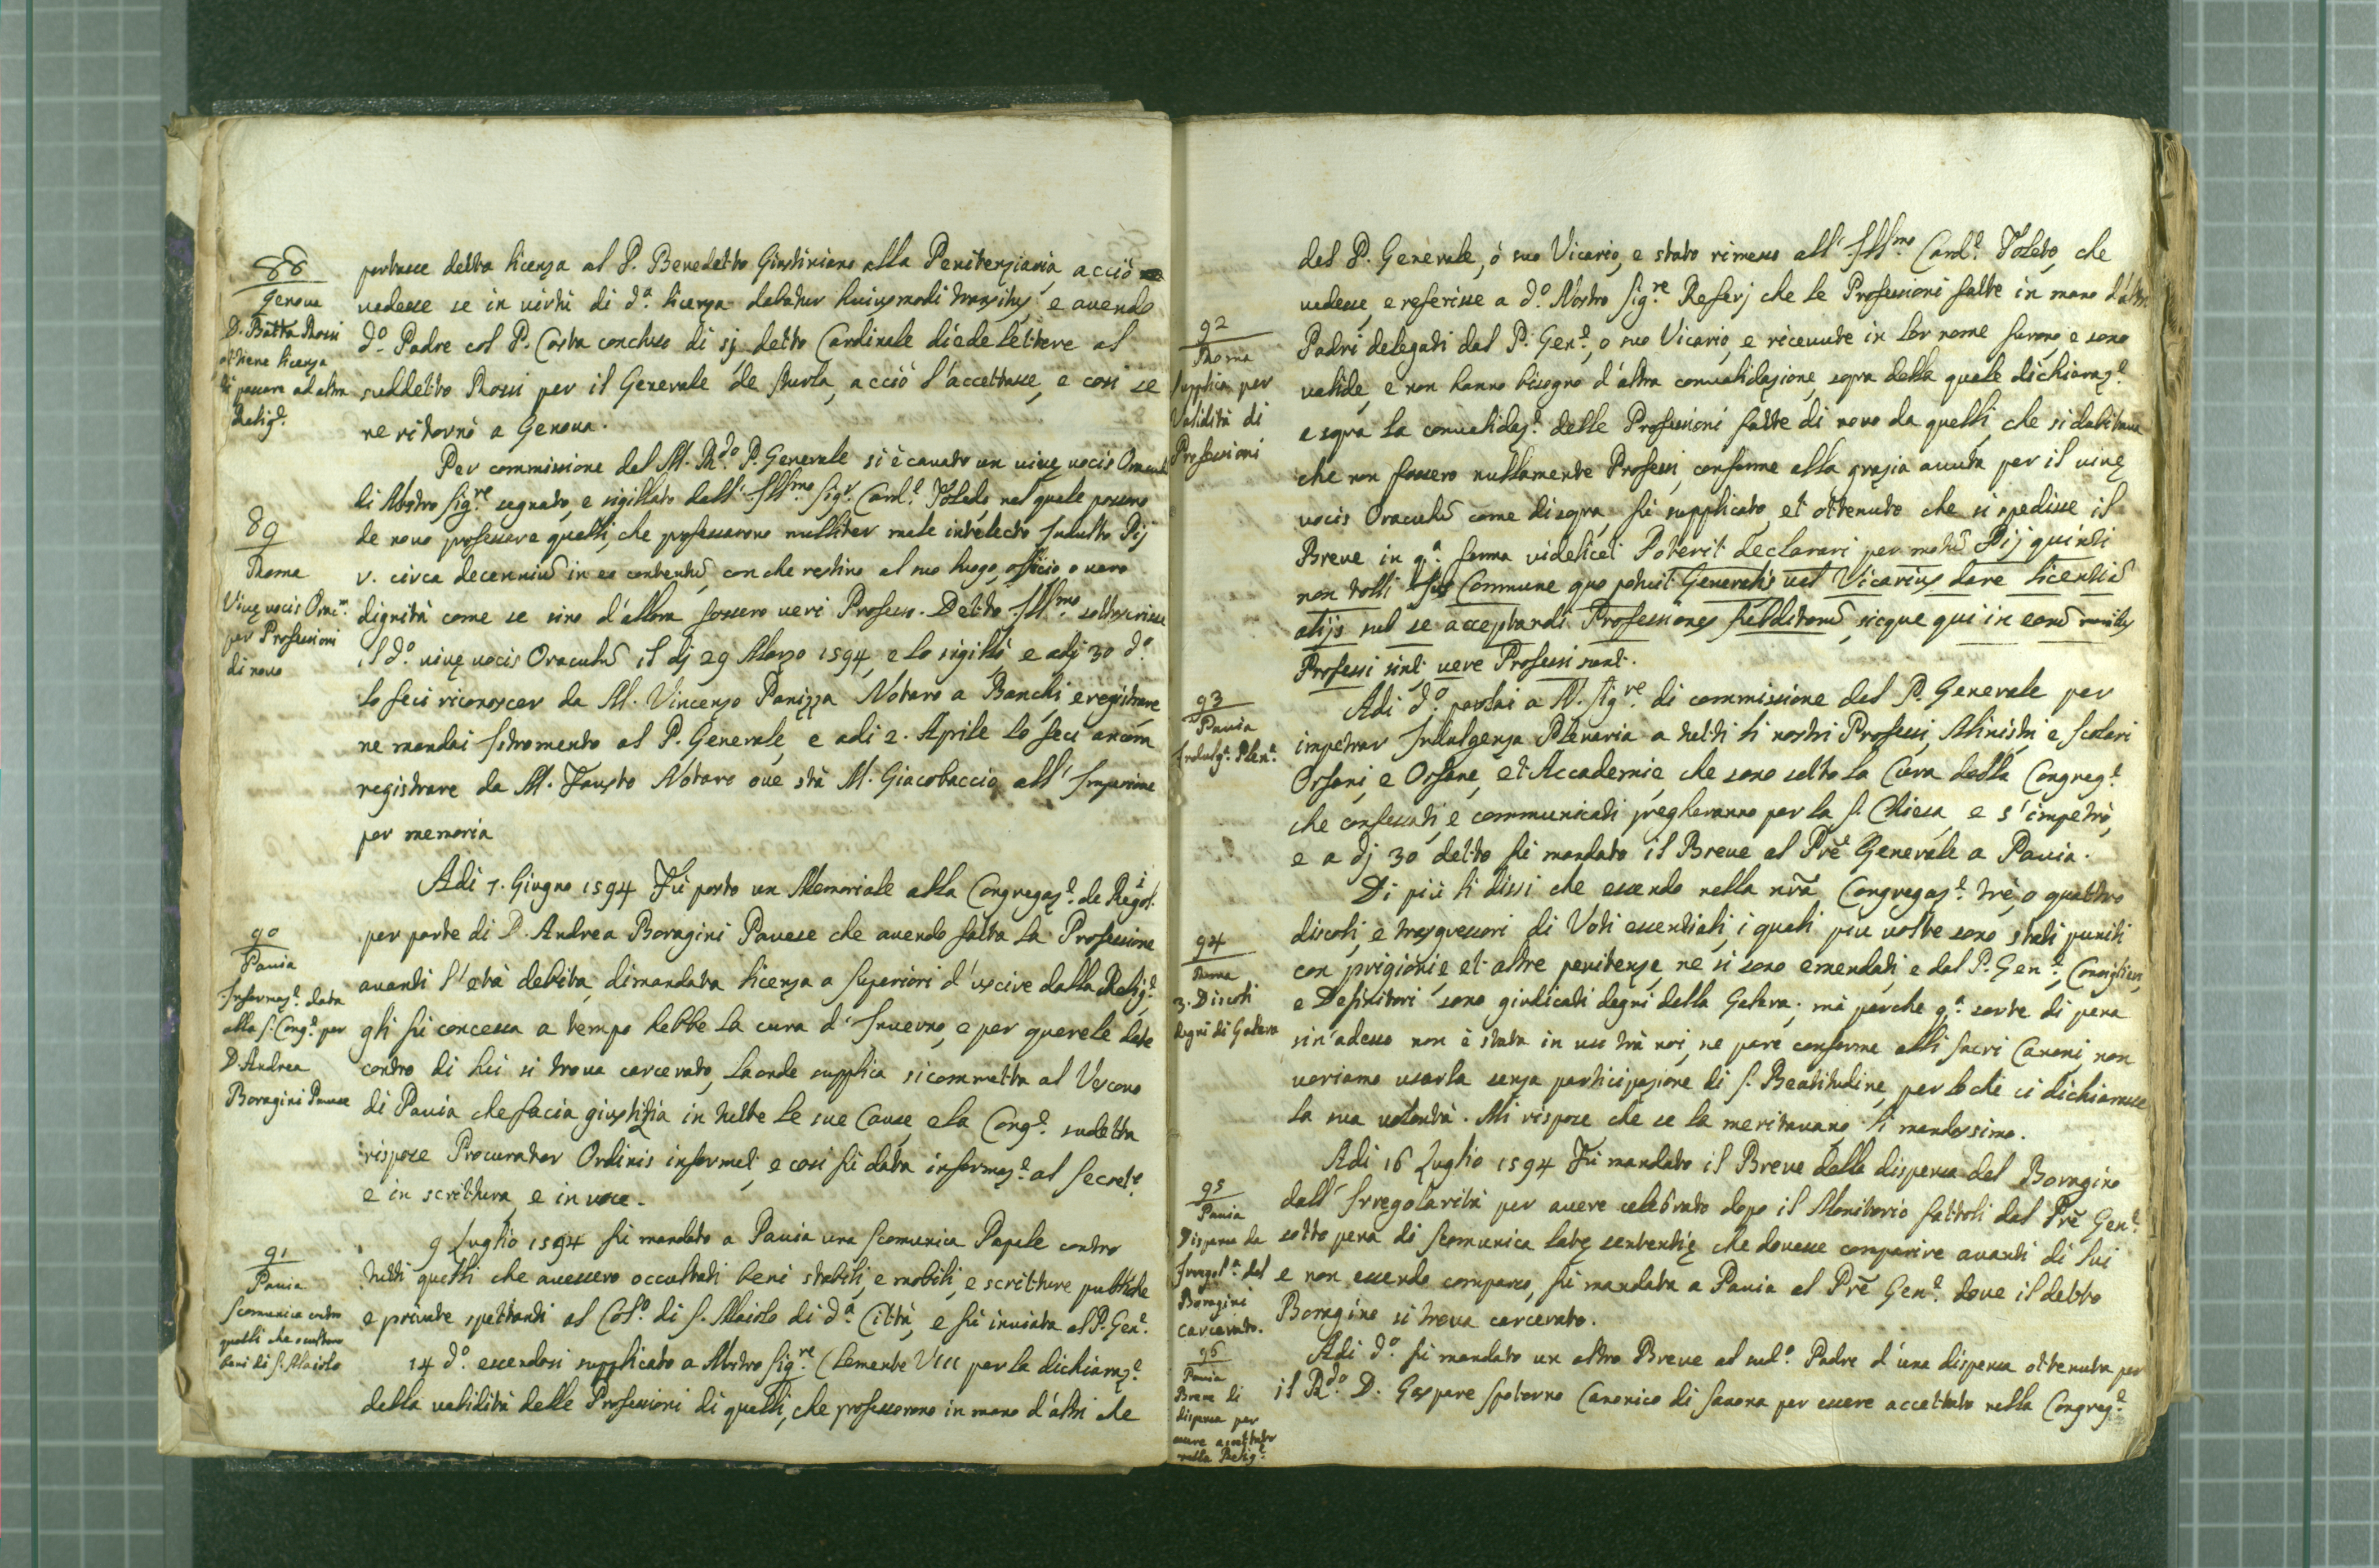 88
Genoua
D. Batta Rossi
ottiene licenza
di passare ad altra
Relig.e
portasse detta licenza al P. Benedetto Giustiniano alla Penitenziaria, acciò
vedesse se in virtù di d.a licenza debatur huiusmodi transitus, e auendo
d.o Padre col P. Costa concluso di sj, detto Cardinale diede lettere al
suddetto Rossi per il Generale de, acciò l'accettasse, e così se
ne ritornò a Genoua.
89
Roma
Viuę vocis Orac.m
per Professioni
di nouo
Per commissione del M. R.do P. Generale si è cauato un viuę vocis
di Nostro Sig.re segnato, e sigillato dall'Ill.mo Sig.r Card.l Toledo, nel quale possono
de nouo professare quelli, che professarono nulliter male intelecto Indulto Pij
V. circa decenniũ in eo contentũ, con che restino al suo luogo, officio o uero
dignità come se sino d'allora fossero ueri Professi. Detto Ill.mo sottoscrisse
il d.o viuę vocis Oraculũ il dj 29 Marzo 1594, e lo sigillò e adj 30 d.o
lo feci riconoscer da M. Vincenzo Panizza Notaro a Banchi, e registrare
ne mandai Istromento al P. Generale, e adi 2. Aprile lo feci ancora
registrare da M. Fausto Notaro oue stà M. Giacobaccio, all'Impressione
per memoria
90
Pauia
Informaz.e data
alla S. Cong.e per
D Andrea
Boragini Pauese
Adi 7. Giugno 1594 Fù porto un Memoriale alla Congregaz.e de Regol.i
per parte di D. Andrea Boragini Pauese che auendo fatta la Professione
auanti l'età debita, dimandata licenza a Superiori d'uscire dalla Relig.e
gli fù concessa a tempo hebbe la cura d'Inuerno, e per querele date
contro di lui si troua carcerato, laonde supplica si commetta al Vescouo
di Pauia che facia giustitia in tutte le sue Cause, e la Cong.e sudetta
rispose Procurator Ordinis informet, e così fù data informaz.e al Secret.o
e in scrittura, e in uoce.
91
Pauia
Scomunica contro
quelli che occultano
beni di S. Maiolo
9 Luglio 1594 fù mandato a Pauia una Scomunica Papale contro
tutti quelli che auessero occultati beni stabili, e mobili, e scritture publiche
e priuate spettanti al Col.o di S. Maiolo di d.a Città, e fù inuiata al P. Gen.e
14 d.o essendosi supplicato a Nostro Sig.re Clemente VIII per la dichiaraz.e
della ualidità delle Professioni di quelli, che professorono in mano d'altri che
92
Roma
Supplica per
Validità di
Professioni
del P. Generale, ò suo Vicario, e stato rimesso all'Ill.mo Card.l Toleto, che
vedesse, e referisse a d.o Nostro Sig.re Referj che le Professioni fatte in mano d'altri
Padri delegati dal P. Gen.e, o suo Vicario, e riceuute in lor nome furono, e sono
valide, e non hanno bisogno d'altra conualidazione, sopra della quale dichiaraz.e
e sopra la conualidaz.e delle Professioni fatte di nouo da quelli, che si dubitaua
che non fossero nullamente Professi, conforme alla grazia auuta per il viuę
vocis Oraculũ come di sopra, fù supplicato, et ottenuto che si spedisse il
Breue in q.a forma videlicet Poterit declarari per motũ Pij quinti
non tolli Ius Commune quo potuit Generalis uel Vicarius dare licentiã
alijs sub se acceptandi Professiones subditorũ, sicque qui in eorũ manibus
Professi sint, uere Professi sunt.
93
Pauia
Indulg.a Plen.a
Adi d.o parlai a N. Sig.re di commissione del P. Generale per
impetrar Indulgenza Plenaria a tutti li nostri Professi, Ministri e Scolari
Orfani, e Orfane, et Accademie, che sono sotto la Cura della Congreg.e
che confessati, e communicati pregheranno per la S. Chiesa, e s'impetrò,
e a dj 30 detto fù mandato il Breue al Prẽ Generale a Pauia.
94
Roma
3. Discoli
degni di Galera
Di più li dissi che essendo nella nrã Congregaz.e trè, o quattro
discoli, e trasgressori di Voti essentiali, i quali più uolte sono stati puniti
con prigionie, et altre penitenze, ne si sono emendati, e dal P. Gen.e, Consiglieri,
e Definitori sono giudicati degni della Galera; mà perche q.a sorte di pena
sin'adesso non è stata in uso trà noi, ne pare conforme alli sacri Canoni, non
uoriamo usarla senza participazione di S. Beatitudine, per loche ci dichiarasse
la sua uolontà. Mi rispose che se la meritauano li mandassimo.
95
Pauia
Dispensa da
Irregol.a del
Boragini
carcerato.
Adi 16 Luglio 1594 Fù mandato il Breue della dispensa del Boragino
dall'Irregolarità per auere celebrato dopo il Monitorio fattoli dal Prẽ Gen.e
sotto pena di Scomunica latę sententię che douesse comparire auanti di lui
e non essendo comparso, fù mandata a Pauia al Prẽ Gen.e doue il detto
Boragino si troua carcerato.
96
Pauia
Breue di
dispensa per
essere accettato
nella Relig.e
Adi d.o fù mandato un altro Breue al sud.o Padre d'una dispensa ottenuta per
il R.do D. Gaspare Spotorno Canonico di Sauona per essere accettato nella Congreg.e